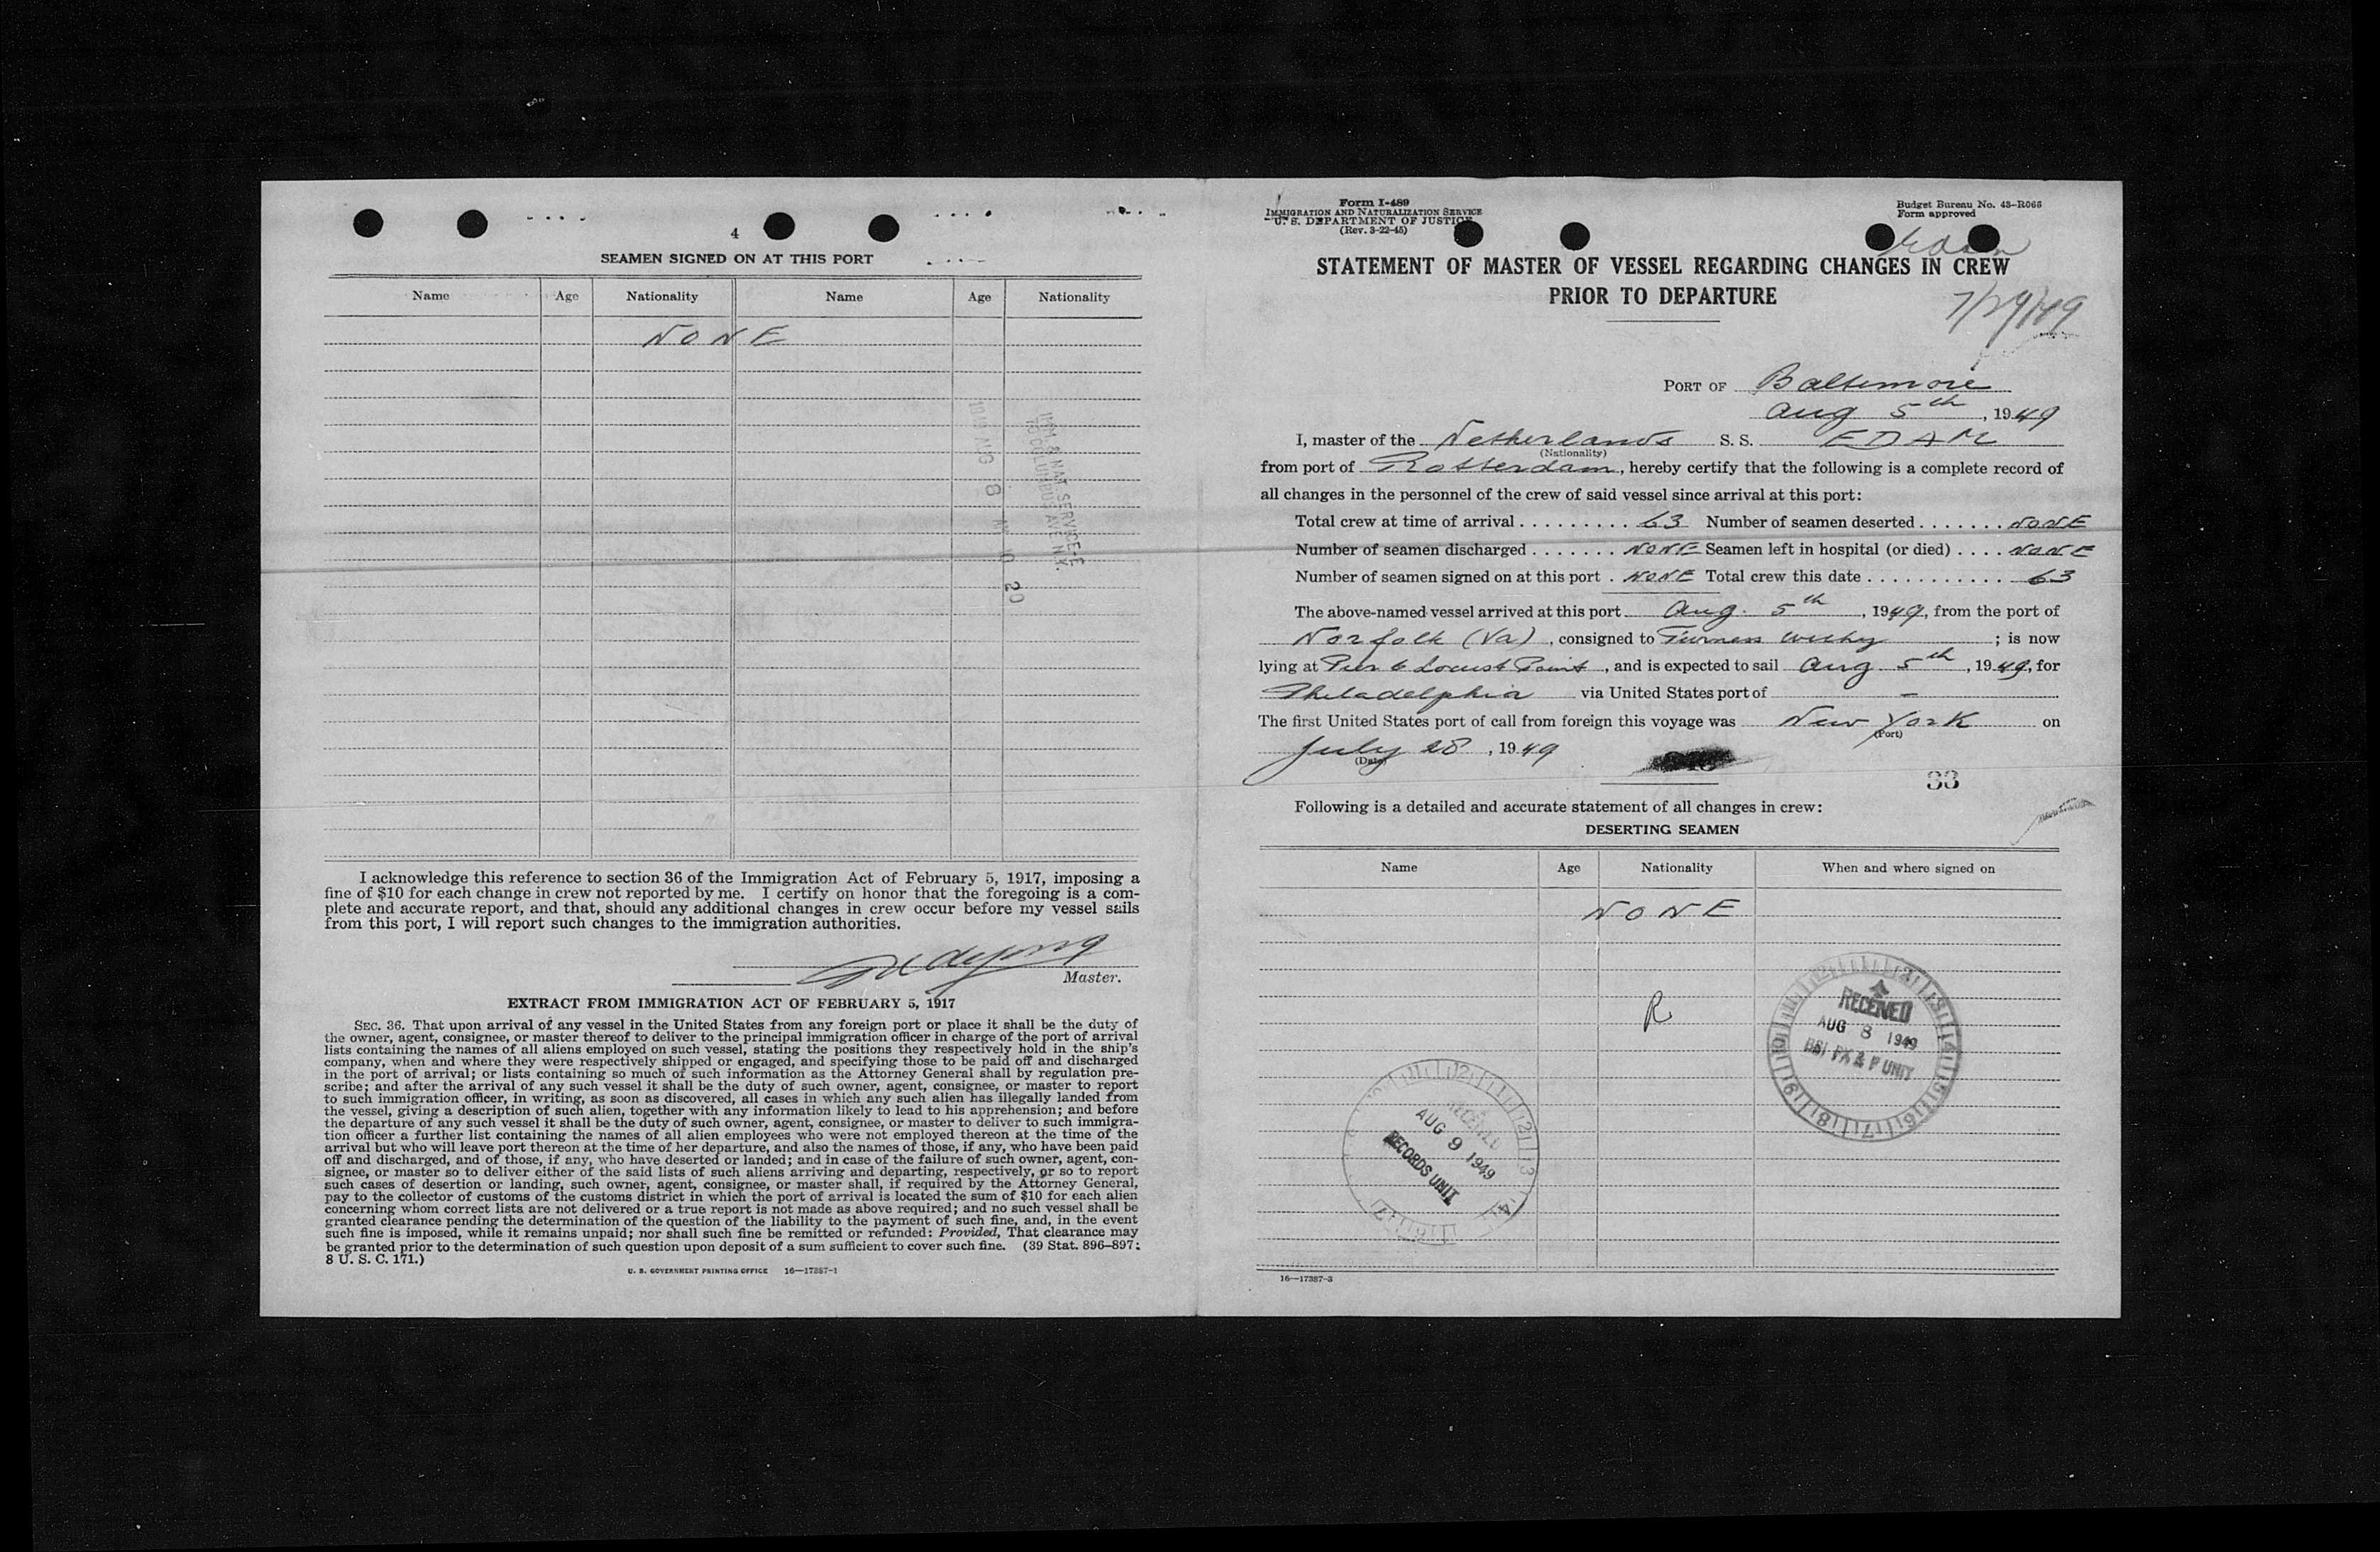 4
SEAMEN SIGNED ON AT THIS PORT
Name Age Nationality Name Age Nationality
NONE
1949 AUG 8 AM 10 20
IMM. & NAT. SERVICE
70 COLUMBUS AVE N.Y.
I acknowledge this reference to section 36 of the Immigration Act of February 5, 1917, imposing a
fine of $10 for each change in crew not reported by me. I certify on honor that the foregoing is a com-
plete and accurate report, and that, should any additional changes in crew occur before my vessel sails
from this port, I will report such changes to the immigration authorities.
Master.
EXTRACT FROM IMMIGRATION ACT OF FEBRUARY 5, 1917
SEC. 36. That upon arrival of any vessel in the United States from any foreign port or place it shall be the duty of
the owner, agent, consignee, or master thereof to deliver to the principal immigration officer in charge of the port of arrival
lists containing the names of all aliens employed on such vessel, stating the positions they respectively hold in the ship's
company, when and where they were respectively shipped or engaged, and specifying those to be paid off and discharged
in the port of arrival; or lists containing so much of such information as the Attorney General shall by regulation pre-
scribe; and after the arrival of any such vessel it shall be the duty of such owner, agent, consignee, or master to report
to such immigration officer, in writing, as soon as discovered, all cases in which any such alien has illegally landed from
the vessel, giving a description of such alien, together with any information likely to lead to his apprehension; and before
the departure of any such vessel it shall be the duty of such owner, agent, consignee, or master to deliver to such immigra-
tion officer a further list containing the names of all alien employees who were not employed thereon at the time of the
arrival but who will leave port thereon at the time of her departure, and also the names of those, if any, who have been paid
off and discharged, and of those, if any, who have deserted or landed; and in case of the failure of such owner, agent, con-
signee, or master so to deliver either of the said lists of such aliens arriving and departing, respectively, or so to report
such cases of desertion or landing, such owner, agent, consignee, or master shall, if required by the Attorney General,
pay to the collector of customs of the customs district in which the port of arrival is located the sum of $10 for each alien
concerning whom correct lists are not delivered or a true report is not made as above required; and no such vessel shall be
granted clearance pending the determination of the question of the liability to the payment of such fine, and, in the event
such fine is imposed, while it remains unpaid; nor shall such fine be remitted or refunded: Provided, That clearance may
be granted prior to the determination of such question upon deposit of a sum sufficient to cover such fine. (39 Stat. 896-897;
8 U. S. C. 171.)
U. S. GOVERNMENT PRINTING OFFICE 16—17387-1
Form I-489
IMMIGRATION AND NATURALIZATION SERVICE
U. S. DEPARTMENT OF JUSTICE
(Rev. 3-22-45)
Budget Bureau No. 43-R066
Form approved
Edam
STATEMENT OF MASTER OF VESSEL REGARDING CHANGES IN CREW
PRIOR TO DEPARTURE
7/29/49
PORT OF Baltimore
Aug 5th, 1949
I, master of the Netherlands S. S. EDAM
(Nationality)
from port of Rotterdam, hereby certify that the following is a complete record of
all changes in the personnel of the crew of said vessel since arrival at this port:
Total crew at time of arrival ......... 63 Number of seamen deserted ....... NONE
Number of seamen discharged ....... NONE Seamen left in hospital (or died) .... NONE
Number of seamen signed on at this port . NONE Total crew this date ............ 63
The above-named vessel arrived at this port Aug. 5th, 1949, from the port of
Norfolk (Va), consigned to Furness Withy ; is now
lying at Pier 6 Locust Point, and is expected to sail Aug 5th, 1949, for
Philadelphia via United States port of —
The first United States port of call from foreign this voyage was New York on
(Port)
July 28, 1949
(Date)
33
Following is a detailed and accurate statement of all changes in crew:
DESERTING SEAMEN
Name Age Nationality When and where signed on
NONE
R
RECEIVED
AUG 8 1949
RECEIVED
AUG 9 1949
RECORDS UNIT
16—17387-3